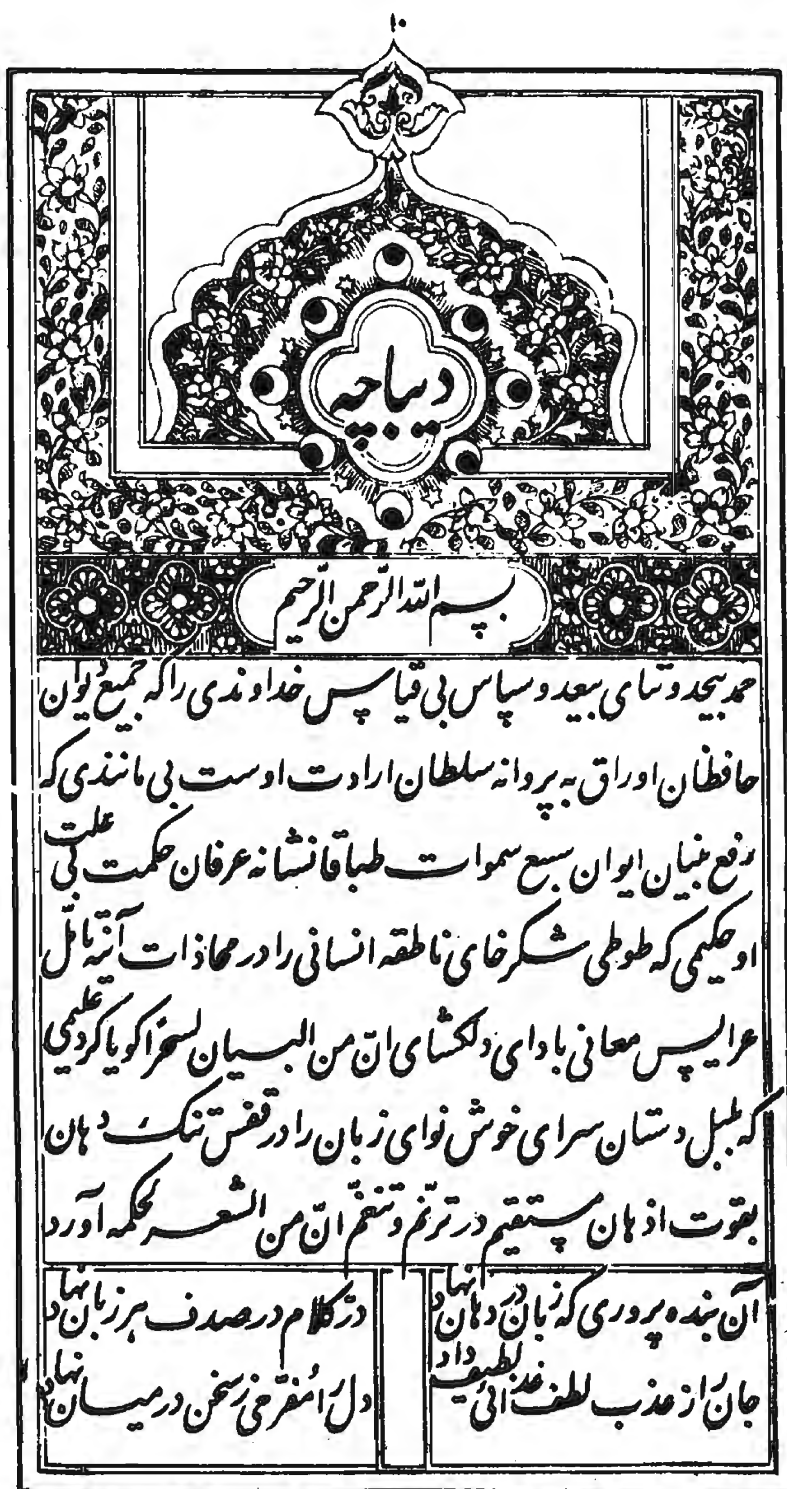 ۱۰
دیباچه
بسم الله الرحمن الرحیم
حمد بیحد و ثنای بیعد و سپاس بی قیاس خداوندی را که جمیع دیوان
حافظان اوراق به پروانه سلطان ارادت اوست بی مانندی که
رفع بنیان ایوان سبع سموات طباقا نشانه عرفان حکمت بی علت
او حکیمی که طوطی شکرخای ناطقه انسانی را در محاذات آئنه تأمل
عرایس معانی بادای دلکشای انّ من البیان لسحرا کویا کرد علیمی
که بلبل دستان سرای خوش نوای زبان را در قفس تنک دهان
بقوت اذهان مستقیم در ترنّم و تنغّم انّ من الشعر لحکمه آورد
آن بنده پروری که زبان در دهان نهاد درّ کلام در صدف هر زبان نهاد
جان را ز عذب لطف غذائی لطیف داد دل را مفرحی ز سخن در میان نهاد